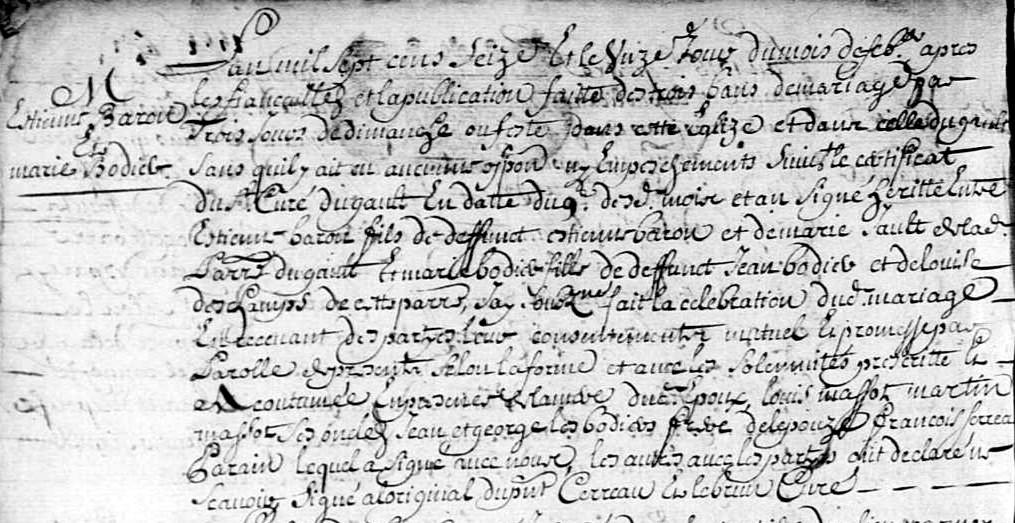 Lan mil sept cens seize Et le unze Jour du mois de feb.er apres
les fiancailles et la publication faitte des trois bans de mariage par
Estienne Baron
trois Jours de dimanche ou feste dans cette eglize et dans celle du gault
Et
marie Bodier
sans quil y ait eu aucunne oppon ny Empeschements suivt le certificat
du Sr. Curé du gault En datte du 9e. desd. mois et an signé Entre
Estienne baron fils de deffunct estienne baron et de marie Sault de lad.
parr. du gault Et marie bodier fille de deffunct Jean bodier et de louise
deschamps de cette parr, Jay soubz.né fait la celebration dud. mariage
En recevant des parties leur consentement mutuel Et promesse par
parolle de present selon la forme et avec les solemnites prescritte Et
acoutumée En presence de dud. Epoux, louis massot martin
massot ses oncles Jean et george les bodiers frere de lepouze francois
parain lequel a signé avec nous, les autres avec les parties ont declaré ne
scavoir signé a loriginal du pnt Cerreau Et lebrun Curé